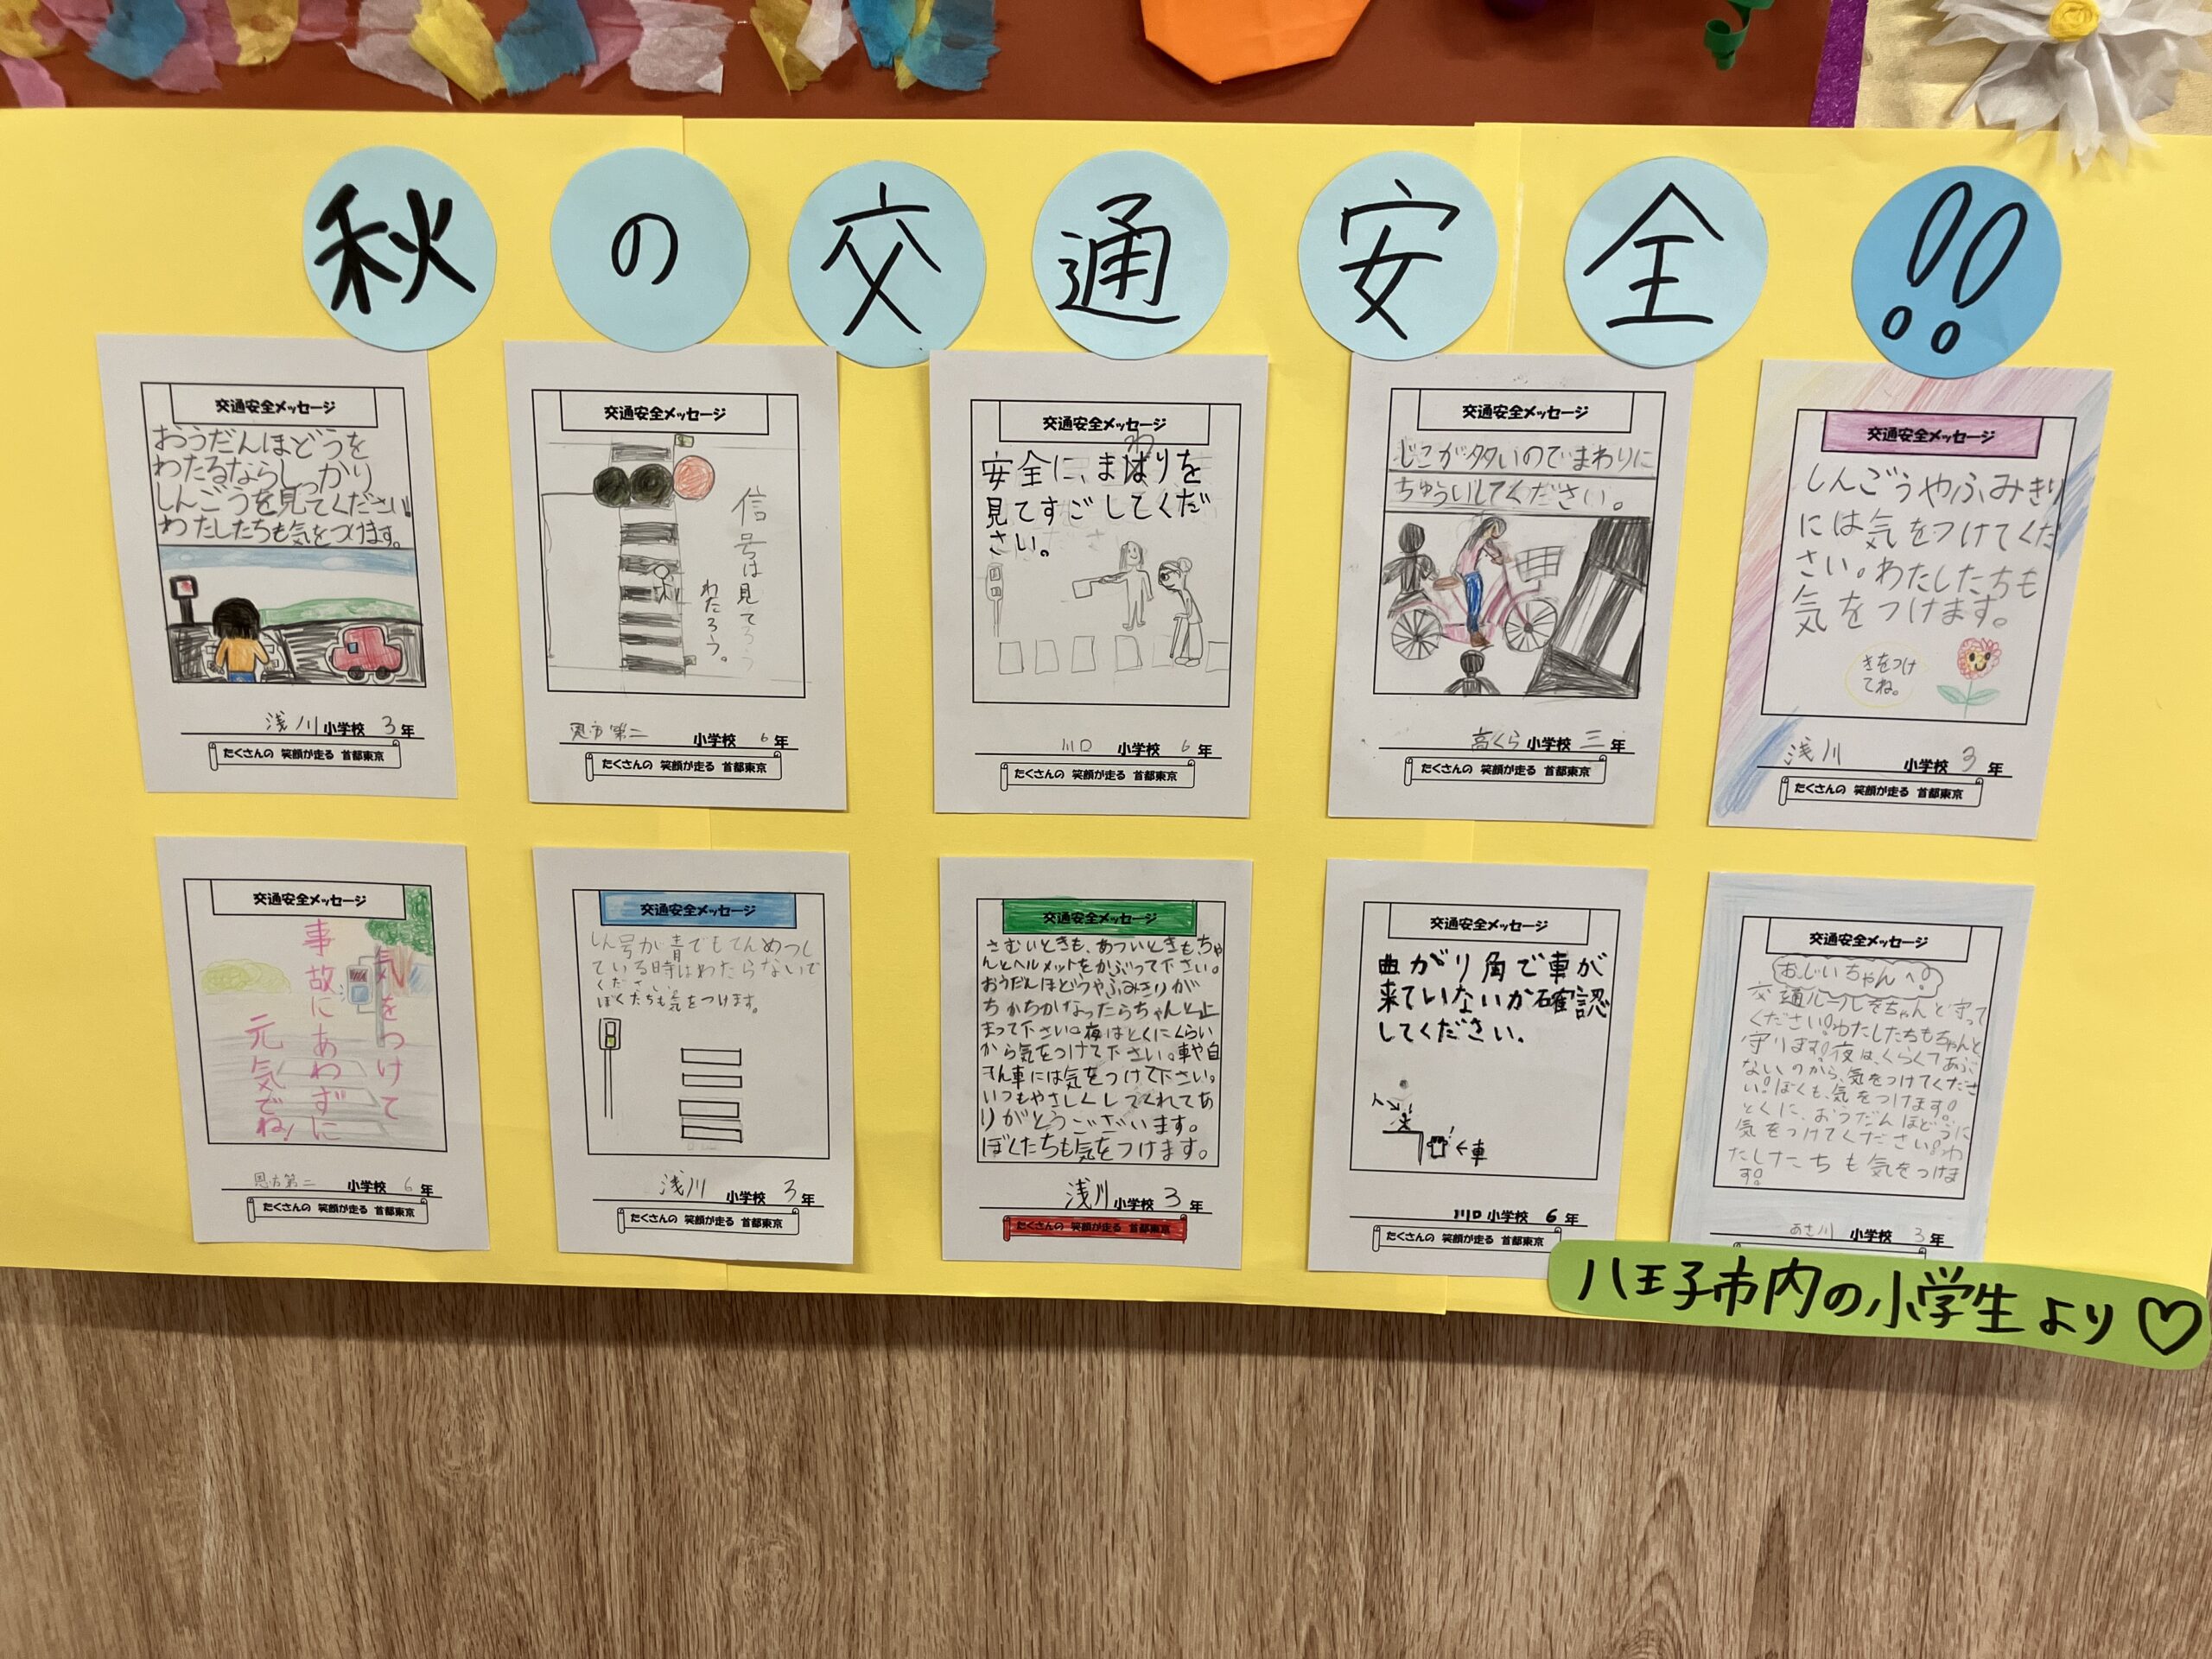 秋の交通安全!!
交通安全メッセージ
おうだんほどうを
わたるならしっかり
しんごうを見てください!
わたしたちも気をつけます。
浅川小学校 3年
たくさんの 笑顔が走る 首都東京
交通安全メッセージ
信号は見て
わたろう。
恩方第二 小学校 6年
たくさんの 笑顔が走る 首都東京
交通安全メッセージ
安全に、まわりを
見てすごしてくだ
さい。
川口 小学校 6年
たくさんの 笑顔が走る 首都東京
交通安全メッセージ
じこが多いのでまわりに
ちゅういしてください。
高くら小学校 三年
たくさんの 笑顔が走る 首都東京
交通安全メッセージ
しんごうやふみきり
には気をつけてくだ
さい。わたしたちも
気をつけます。
きをつけ
てね。
浅川 小学校 3年
たくさんの 笑顔が走る 首都東京
交通安全メッセージ
気をつけて
事故にあわずに
元気でね!
恩方第二 小学校 6年
たくさんの 笑顔が走る 首都東京
交通安全メッセージ
しん号が青でもてんめつし
ている時はわたらないで
ください。
ぼくたちも気をつけます。
浅川 小学校 3年
たくさんの 笑顔が走る 首都東京
交通安全メッセージ
さむいときも、あついときもちゃ
んとヘルメットをかぶって下さい。
おうだんほどうやふみきりが
ちかちかなったらちゃんと止
まって下さい。夜はとくにくらい
から気をつけて下さい。車や自
てん車には気をつけて下さい。
いつもやさしくしてくれてあ
りがとうございます。
ぼくたちも気をつけます。
浅川小学校 3年
たくさんの 笑顔が走る 首都東京
交通安全メッセージ
曲がり角で車が
来ていないか確認
してください.
人
←車
川口小学校 6年
たくさんの 笑顔が走る 首都東京
交通安全メッセージ
おじいちゃんへ!
交通ルールをちゃんと守って
ください!わたしたちもちゃんと
守ります!夜は、くらくてあぶ
ないのから、気をつけてくださ
い!ぼくも、気をつけます!
とくに、おうだんほどうに
気をつけてください!わ
たしたちも気をつけま
す!
あさ川 小学校 3年
八王子市内の小学生より♡